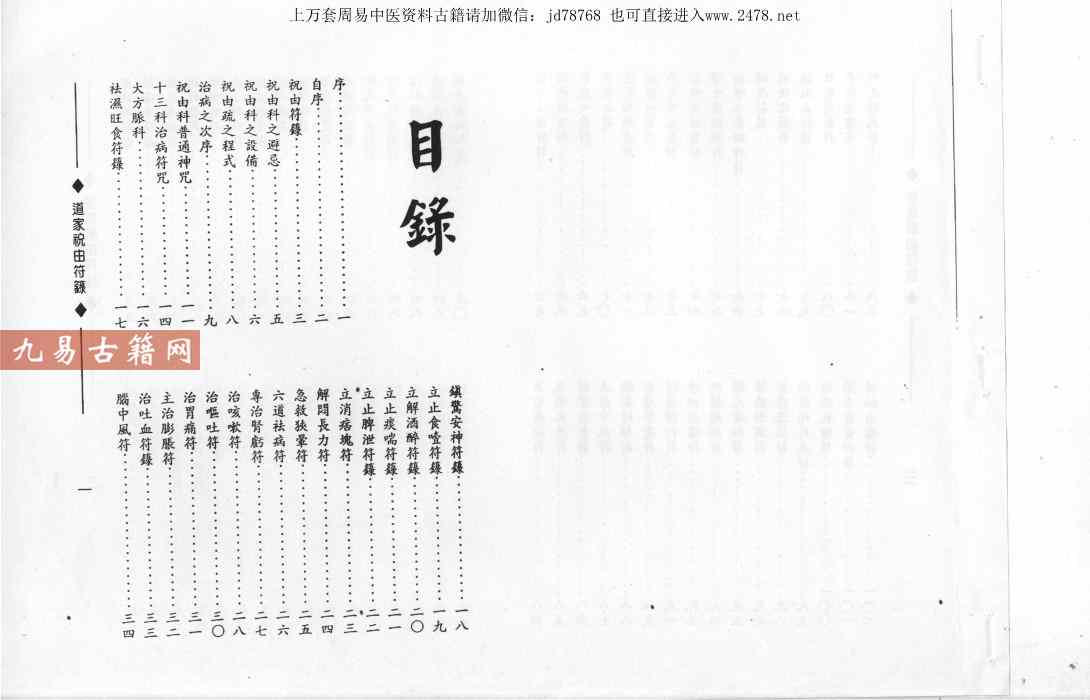 上万套周易中医资料古籍请加微信：jd78768 也可直接进入www.2478.net
目錄
序……一
自序……二
祝由符籙……三
祝由科之避忌……五
祝由科之設備……六
祝由疏之程式……八
治病之次序……九
祝由科普通神咒……一一
十三科治病符咒……一四
大方脈科……一六
祛濕旺食符籙……一七
鎮驚安神符籙……一八
立止食噎符籙……一九
立解酒醉符籙……二〇
立止痰喘符籙……二一
立止脾泄符籙……二二
立消痞塊符……二三
解悶長力符……二四
急救痰暈符……二五
六道祛病符……二六
專治腎虧符……二七
治咳嗽符……二八
治嘔吐符……三〇
治胃痛符……三一
主治膨脹符……三二
治吐血符籙……三三
腦中風符……三四
◆ 道家祝由符籙 ◆
一
九易古籍网